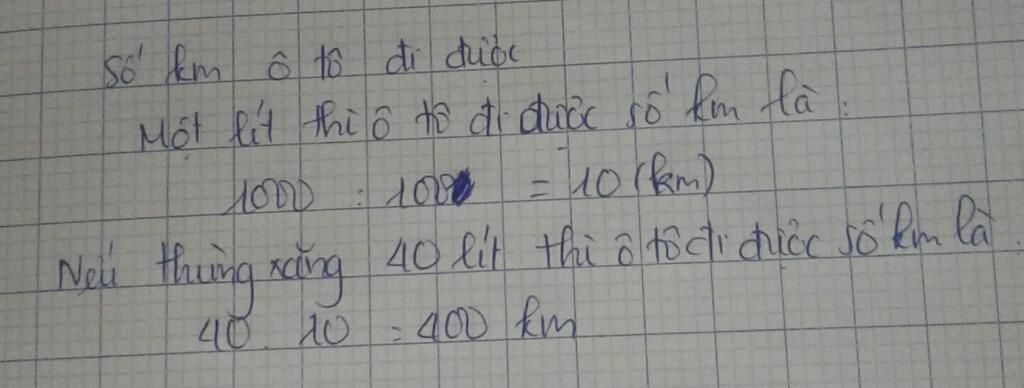 Số km ô tô đi được
Một lít thì ô tô đi được số km là:
1000 : 100 = 10 (km)
Nếu thùng xăng 40 lít thì ô tô đi được số km là
40 . 10 = 400 km